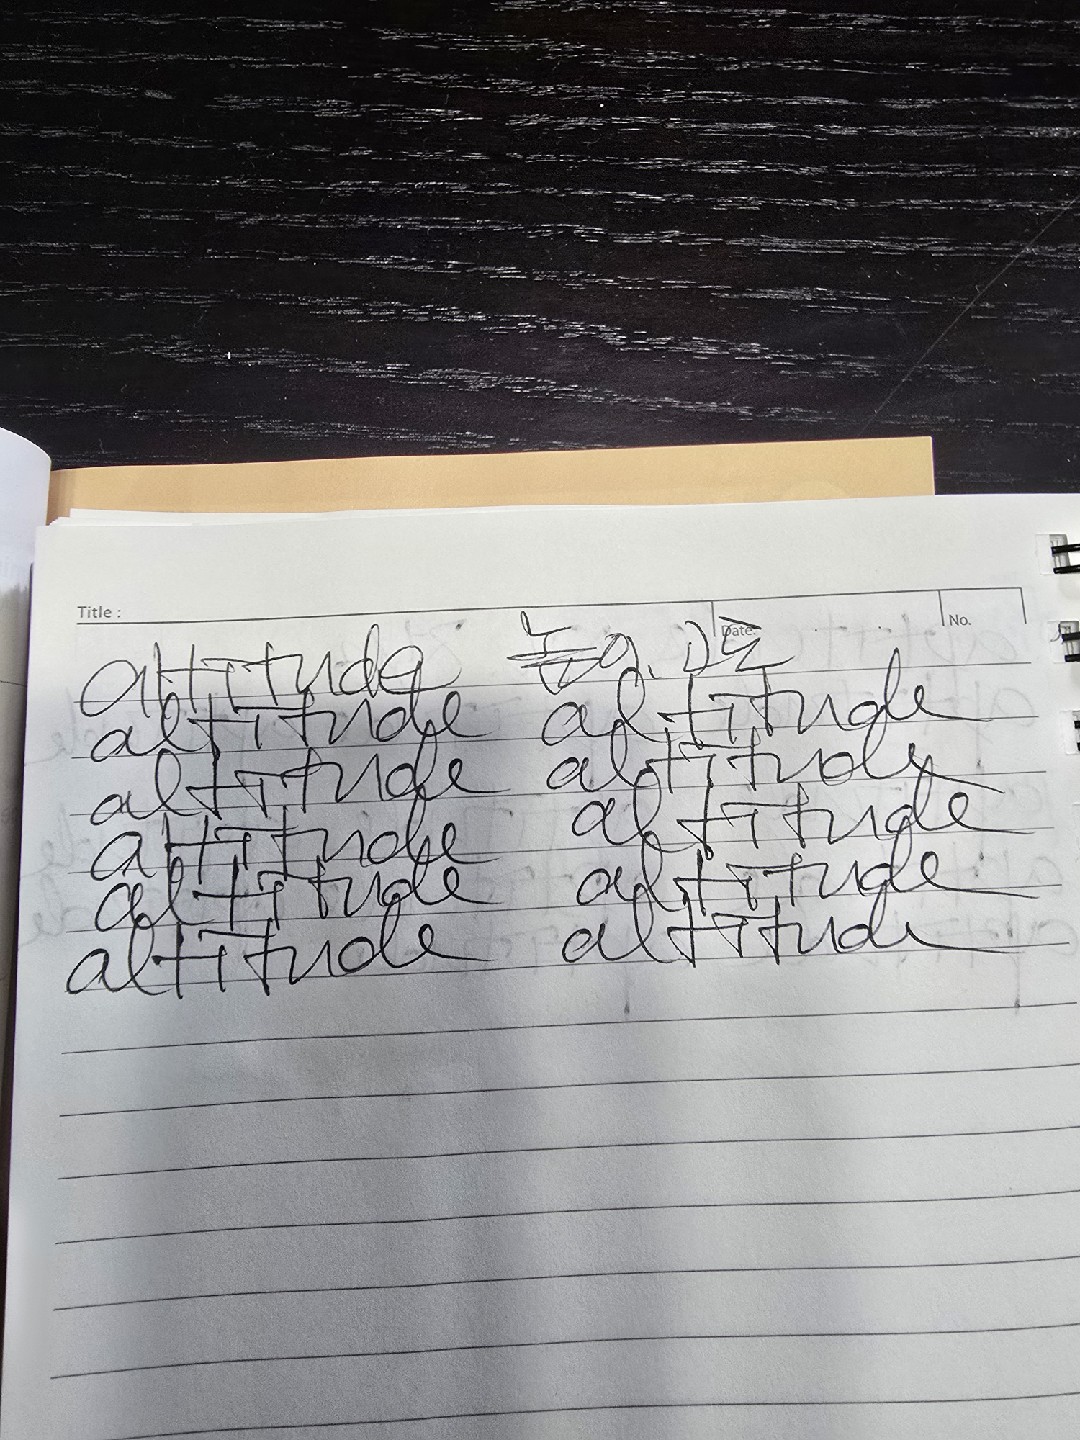 Title :
Date:
No.
altitude 높이. 고도
altitude altitude
altitude altitude
altitude altitude
altitude altitude
altitude altitude